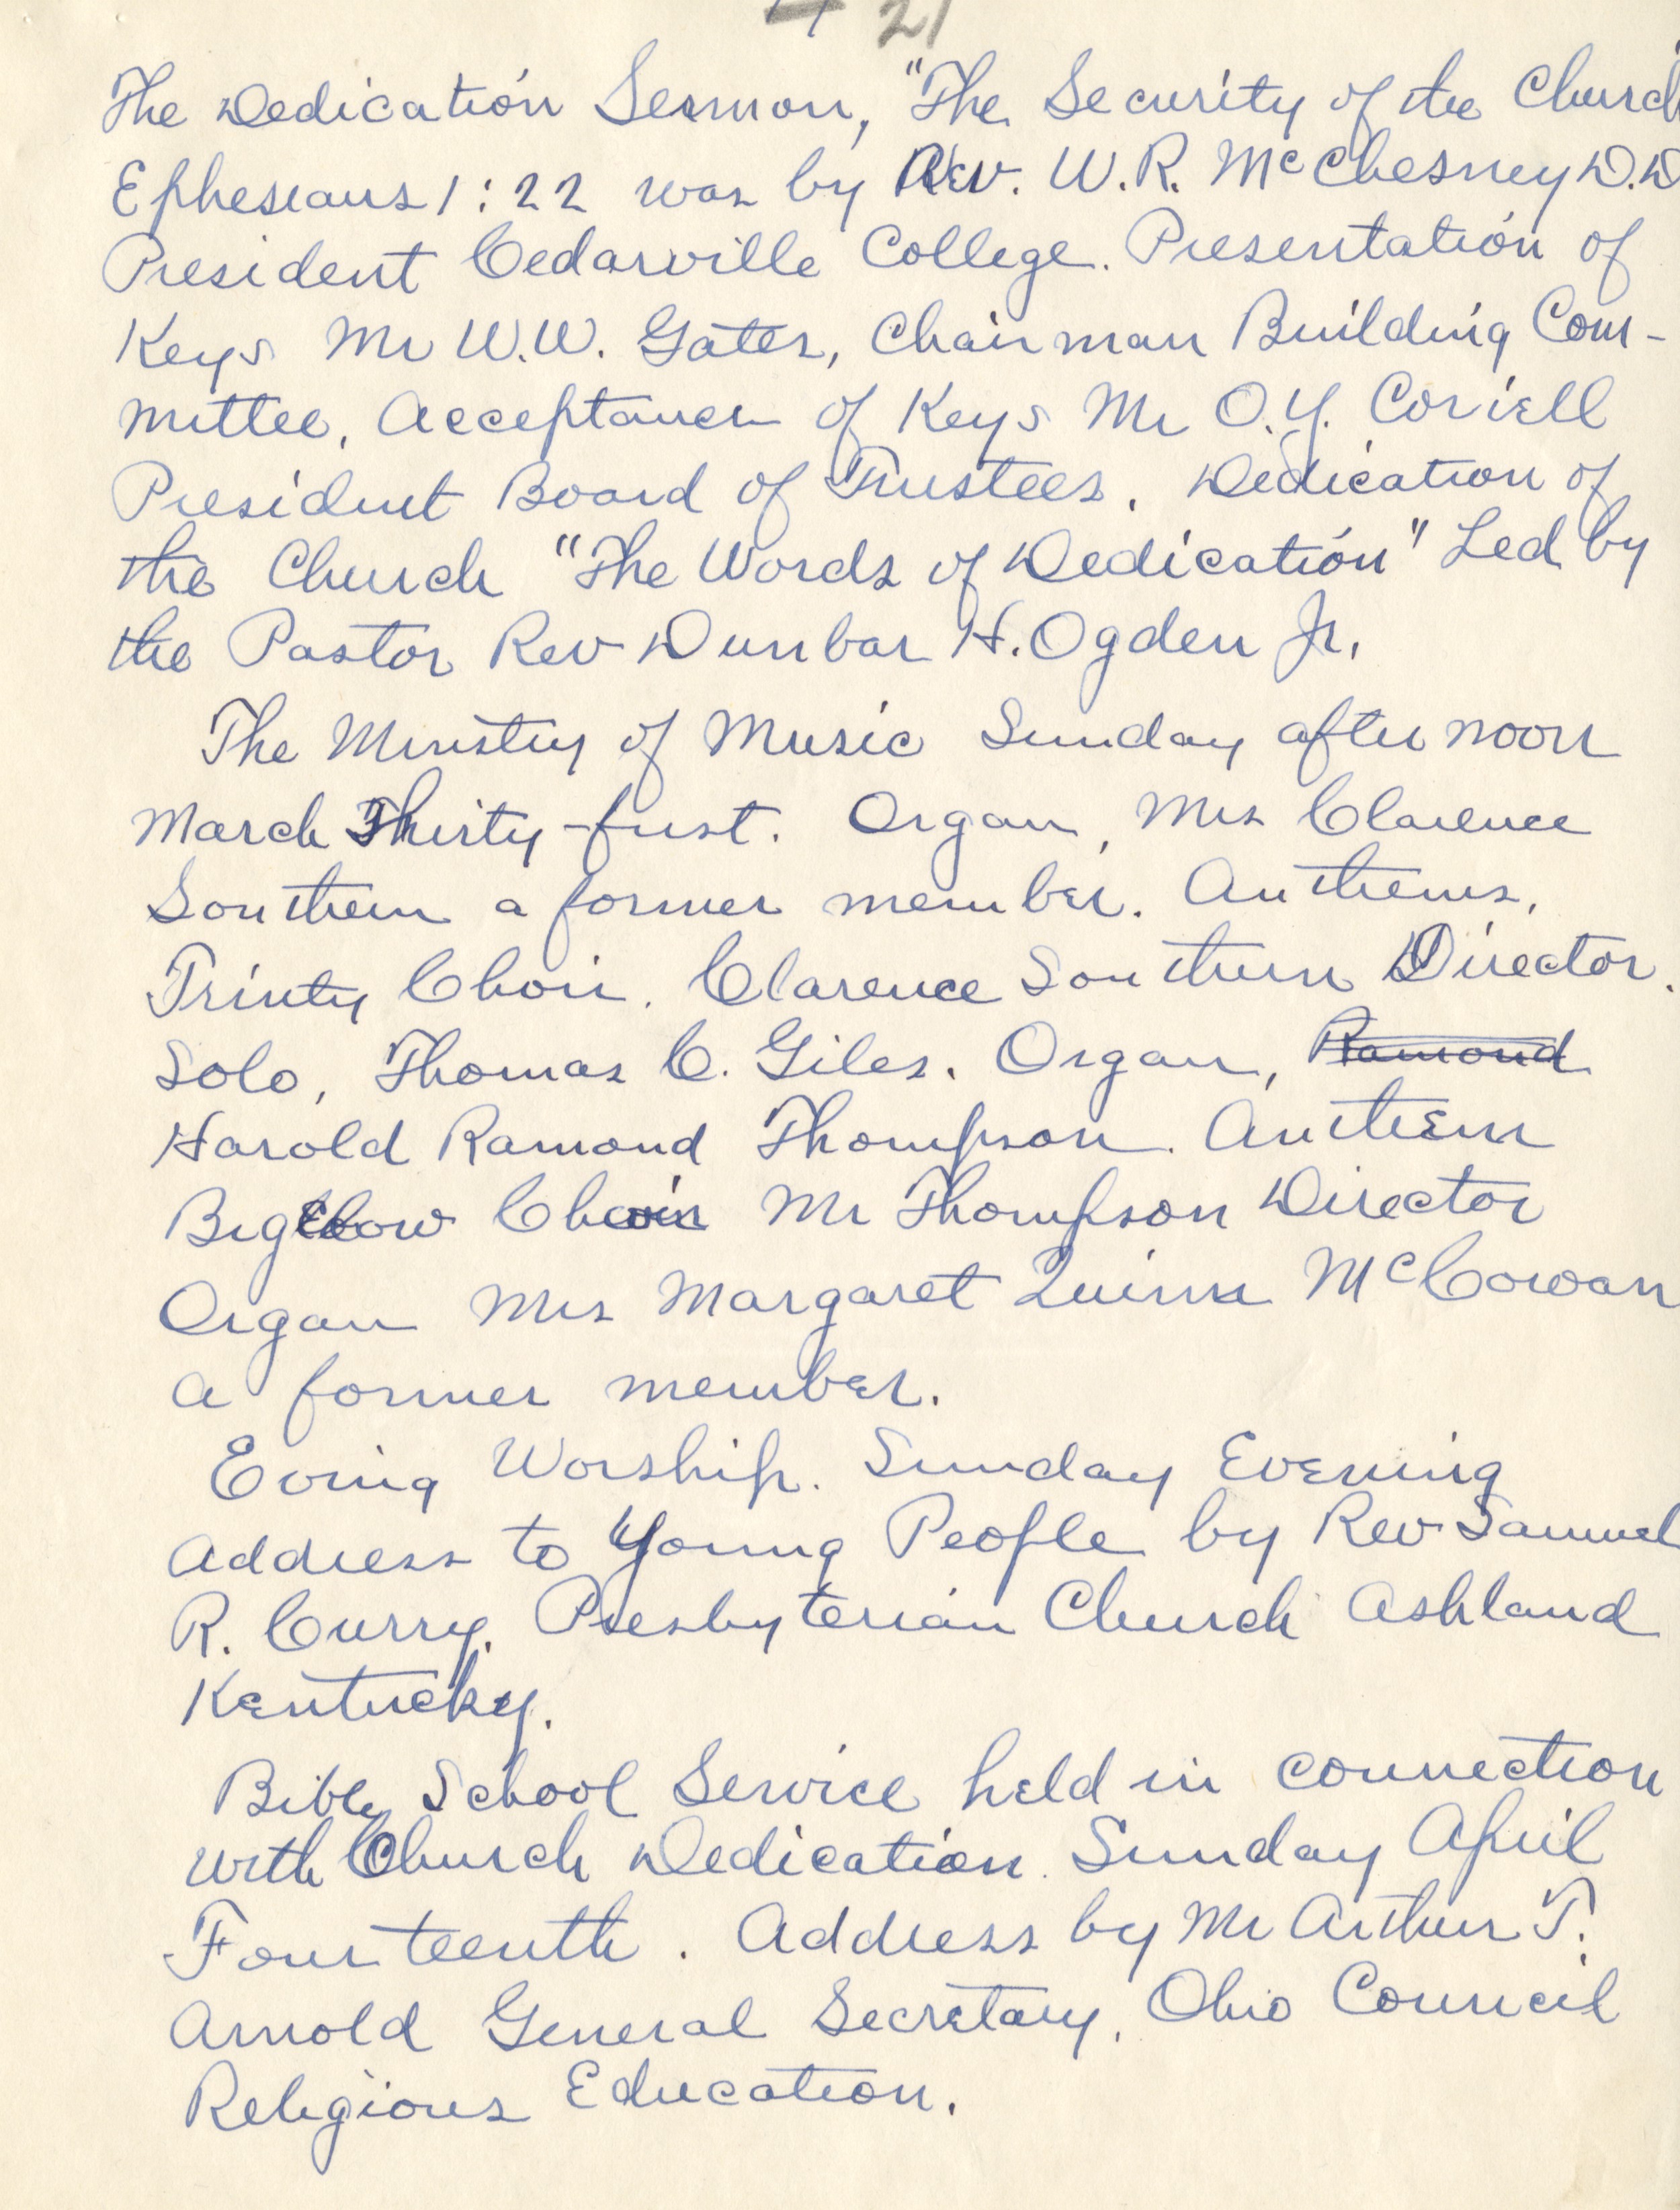 21
The Dedication Sermon, "The Security of the Church"
Ephesians 1:22 was by Rev. W.R. McChesney D.D
President Cedarville College. Presentation of
Keys Mr W.W. Gates, Chairman Building Com-
mittee, Acceptance of Keys Mr O.Y. Coriell
President Board of Trustees. Dedication of
the Church "The Words of Dedication" Led by
the Pastor Rev Dunbar H. Ogden Jr.
The Ministry of Music Sunday afternoon
March Thirty-first. Organ, Mrs Clarence
Southern a former member. Anthems,
Trinty Choir. Clarence Southern Director.
Solo, Thomas C. Giles. Organ, Ramond
Harold Ramond Thompson. Anthem
Bigelow Choir Mr Thompson Director
Organ Mrs Margaret Quinn McCowan
a former member.
Eving Worship. Sunday Evening
Address to Young People by Rev Samuel
R. Curry. Presbyterian Church Ashland
Kentucky.
Bible School Service held in connection
with Church Dedication. Sunday April
Fourteenth. Address by Mr Arthur T.
Arnold General Secretary, Ohio Council
Religious Education.